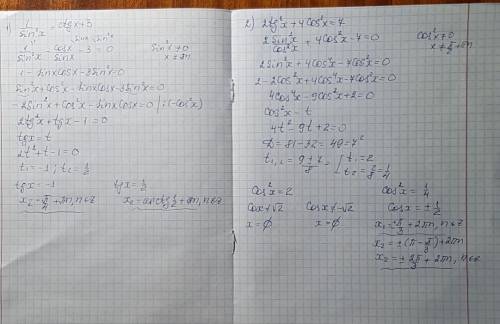 1) 1/sin²x = ctgx+3
1/sin²x - cosx/sinx - 3 = 0   sin²x≠0
x≠πn
1 - sinxcosx - 3sin²x=0
sin²x+cos²x - sinxcosx-3sin²x=0
-2sin²x+cos²x - sinxcosx=0 | :(-cos²x)
2tg²x+tgx-1=0
tgx=t
2t²+t-1=0
t₁=-1; t₂=1/2
tgx=-1   tgx=1/2
x₁=-π/4+πn, n∈z   x₂=arctg1/2+πn, n∈z
2) 2tg²x+4cos²x=7
2sin²x/cos²x+4cos²x-7=0   cos²x≠0
x≠π/2+πn
2sin²x+4cos⁴x-7cos²x=0
2-2cos²x+4cos⁴x-7cos²x=0
4cos⁴x-9cos²x+2=0
cos²x=t
4t²-9t+2=0
D=81-32=49=7²
t₁,₂=9±7/8   t₁=2
t₂=2/8=1/4
cos²x=2   cos²x=1/4
cosx≠√2   cosx≠-√2   cosx=±1/2
x=∅   x=∅   x₁=±π/3+2πn, n∈z
x₂=±(π-π/3)+2πn
x₂=±2π/3+2πn, n∈z